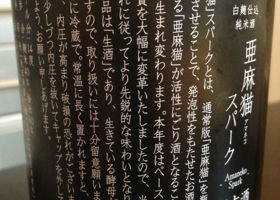 白麹仕込
純米酒
亜麻猫
スパーク
Amaneko
Spark
猫」スパークとは、通常版「亜麻猫」を
させることで、発泡性をもたせたお酒
る「亜麻猫」が活性にごり酒となる
生まれ変わります。本年度はベース
質を大幅に変革いたしましたので、
れに従ってより先鋭的な味わいとなり
品は「生酒」であり、生きている酵母
すので、取り扱いには十分留意願い
に冷蔵で。常温に長く置かれますと
内圧が高まり破損の恐れが
よう、お願い申し上げます。
少しづつ内圧を抜いてキャップを